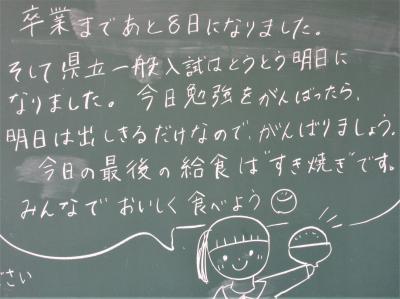 卒業まであと8日になりました。
そして県立一般入試はとうとう明日に
なりました。今日勉強をがんばったら、
明日は出しきるだけなので、がんばりましょう。
今日の最後の給食は"すき焼き"です。
みんなでおいしく食べよう
ださい